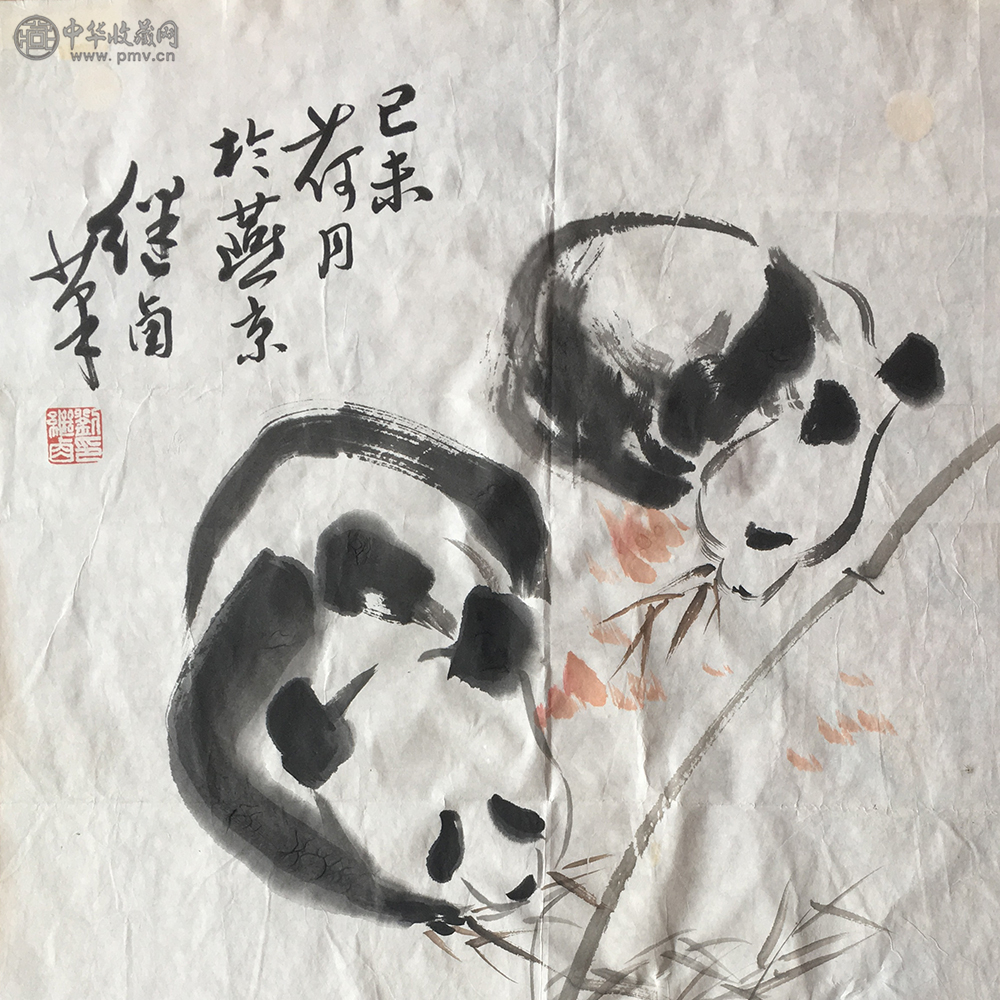 中华收藏网
www.pmv.cn
己未
荷月
於燕京
继卣
筆
劉
繼卣
印